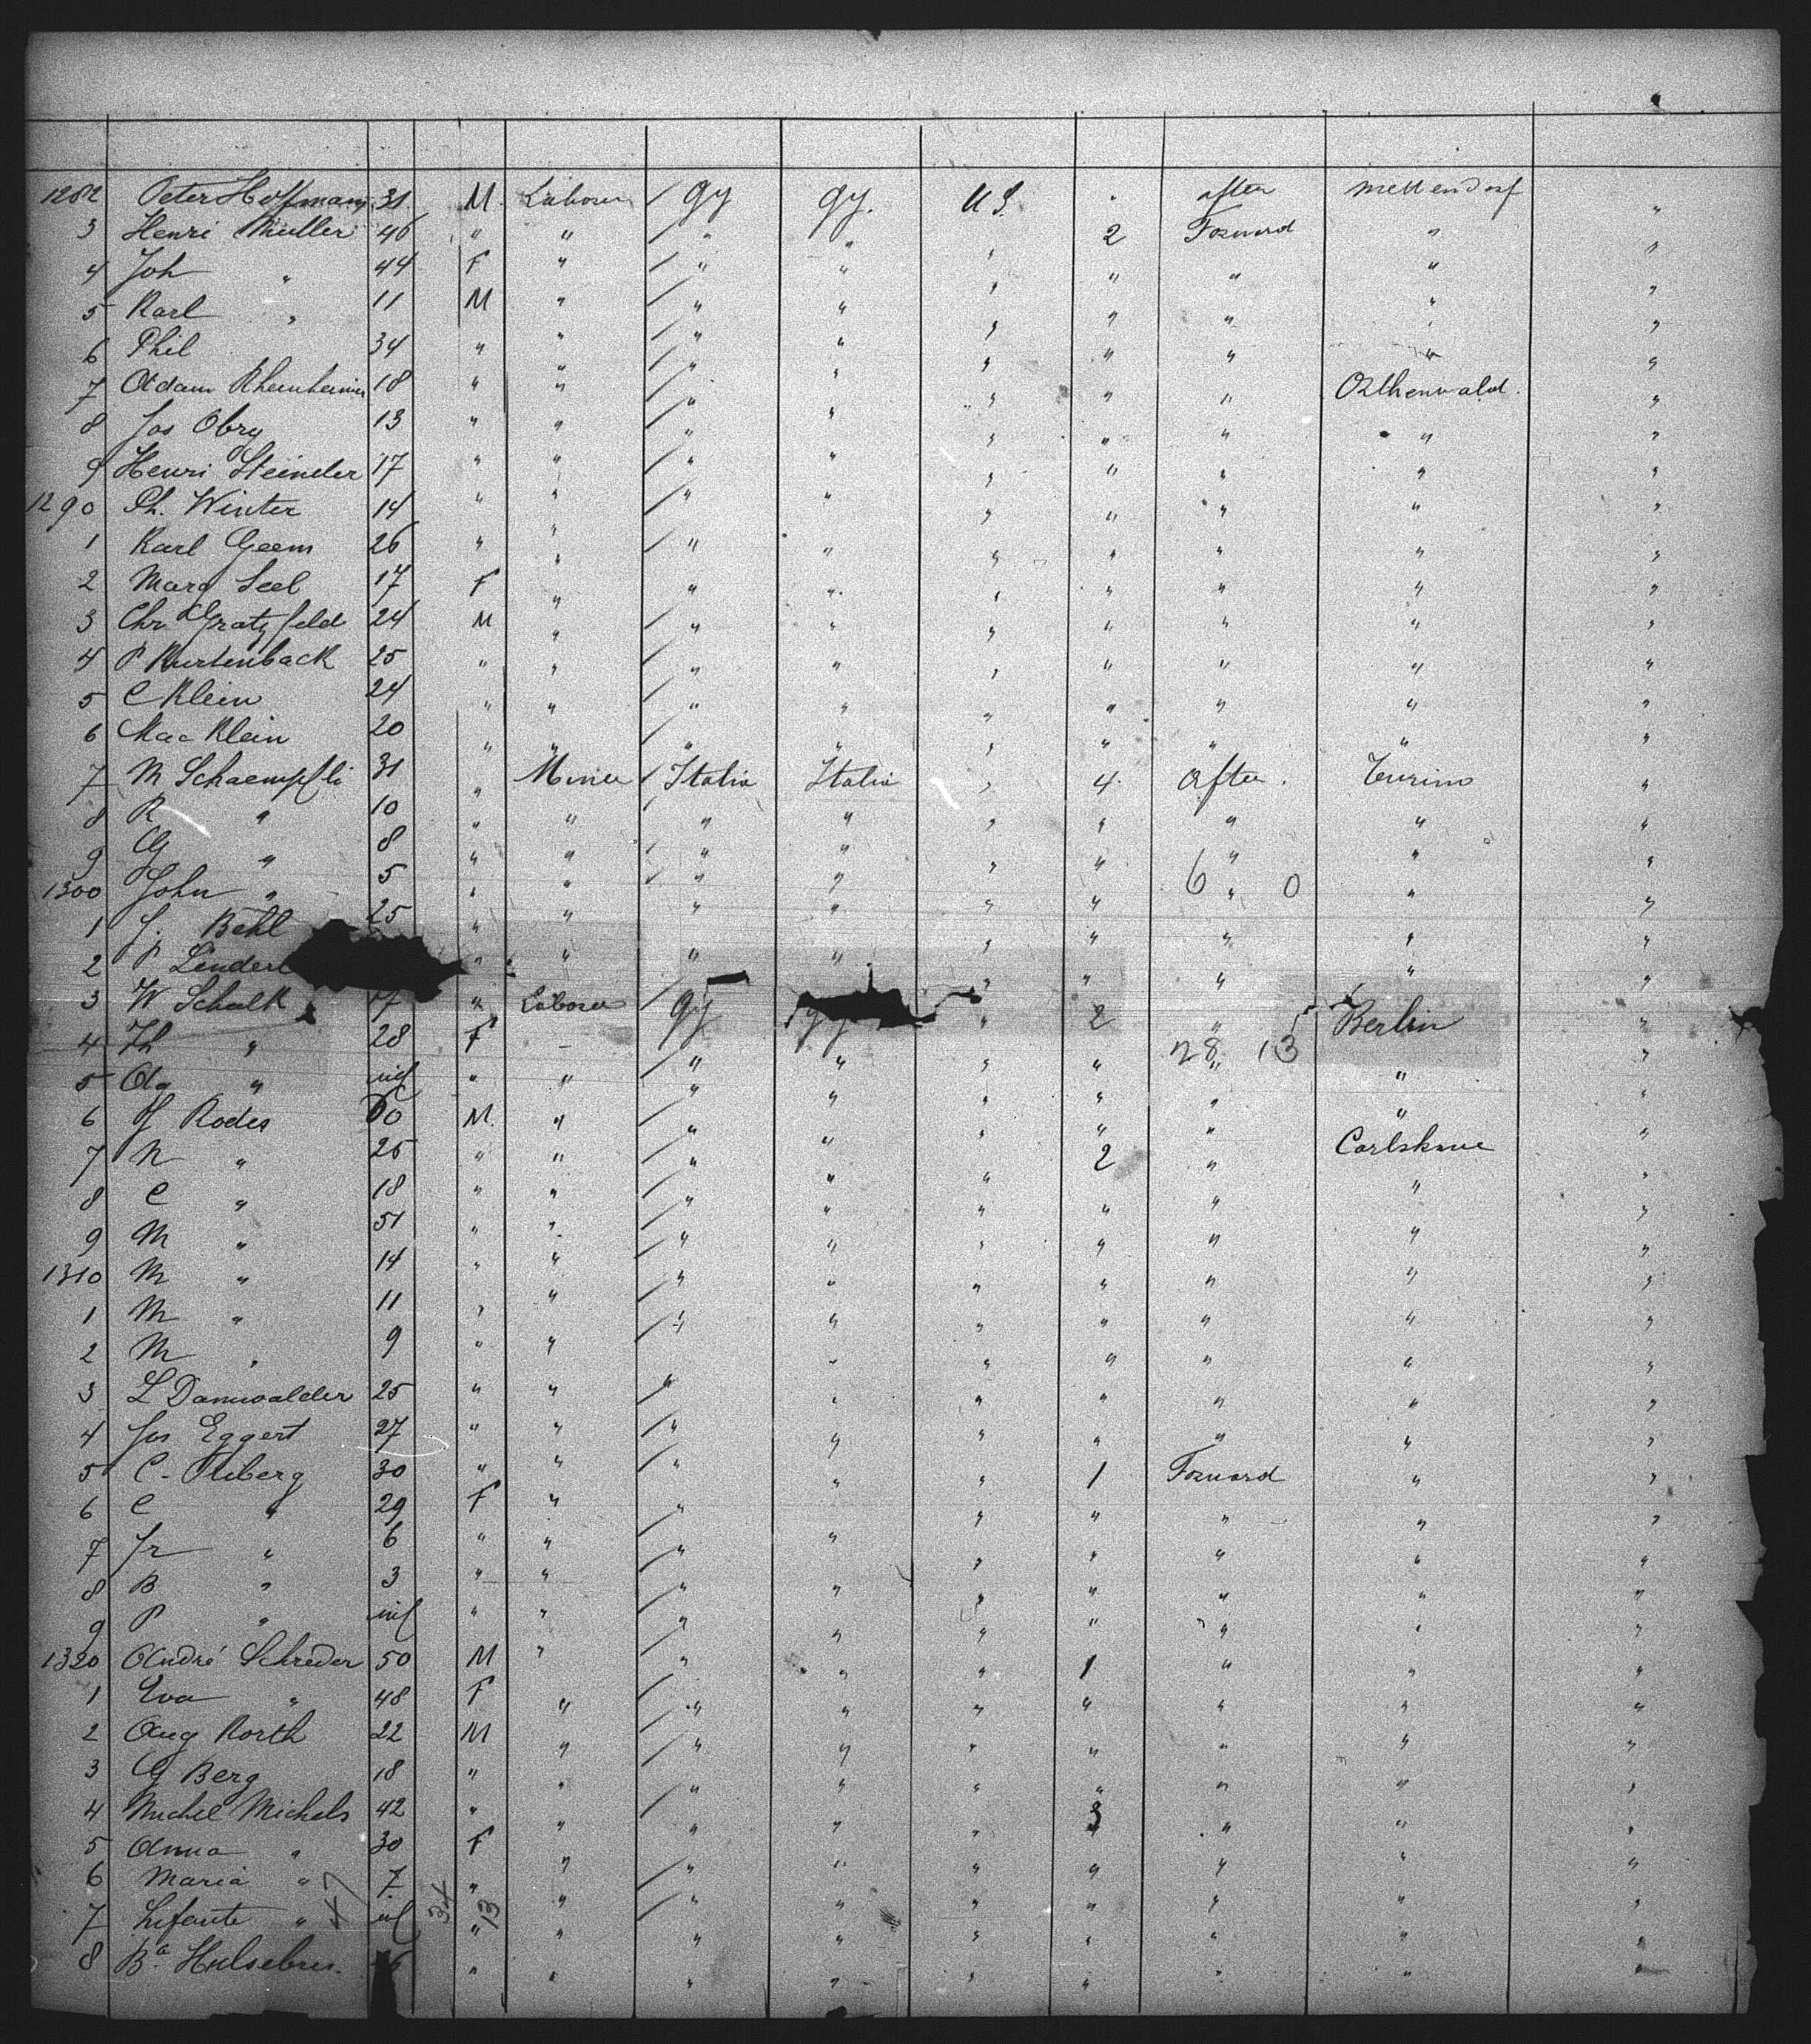 1282 Peter Hoffmann 31 M. Laborer / Gy Gy. U S. " after Mettendorf "
3 Henri Müller 46 " " / " " " 2 Forward " "
4 Joh " 44 F " / " " " " " " "
5 Karl " 11 M " / " " " " " " "
6 Phil 34 " " / " " " " " " "
7 Adam Rheinheimer 18 " " / " " " " " "
8 Jos Obry 13 " " " " " " " " "
9 Henri Steinder 17 " " / " " " " " " "
1290 Ph. Winter 14 " " / " " " " " " "
1 Karl Geem 26 " " / " " " " " " "
2 Marg Seel 17 F " " " " " " " "
3 Chr Gratzfeld 24 M " / " " " " " " "
4 P Kurtenback 25 " " / " " " " " " "
5 C Klein 24 " " / " " " " " " "
6 Mac Klein 20 " " / " " " " " " "
7 M Schaempfli 31 " Miner / Italia Italia " 4 After. Turino "
8 R " 10 " " " " " " " " "
9 G " 8 " " / " " " " " " "
1300 John " 5 " " / " " " " 6 " 0 " "
1 J. Behl 25 " " " " " " " " "
2 P " " " " " " " " "
3 W Schalk " Laborer / Gy " 2 " Berlin "
4 Th " 28 F - " " " " 28 " 13 "
5 " inf " " " " " " " " "
6 Rodes M. " / " " " " " " "
7 N " 25 " " / " " " 2 " Carlskrue "
8 C " 18 " " / " " " " " " "
9 M " 51 " " / " " " " " " "
1310 M " 14 " " / " " " " " " "
1 M " 11 " " / " " " " " " "
2 M " 9 " " / " " " " " "
3 L Danwalder 25 " " / " " " " " " "
4 Jos Eggert 27 " " / " " " " " " "
5 C. 30 " " / " " " 1 Forward " "
6 C " 29 F " / " " " " " " "
7 Jr " 6 " " / " " " " " " "
8 B " 3 " " / " " " " " " "
9 P " inf " " / " " " " " " "
1320 André Schreder 50 M " / " " " 1 " " "
1 Eva " 48 F " / " " " " " " "
2 Aug Korth 22 M " / " " " " " " "
3 G Berg 18 " " / " " " " " " "
4 Michel Michels 42 " " / " " " 3 " " "
5 Anna " 30 F " / " " " " " " "
6 Maria " 7 " " / " " " " " " "
7 Infante " 47 inf 34 13 " " " " " " " " "
8 Ba. " " " " " " " " "